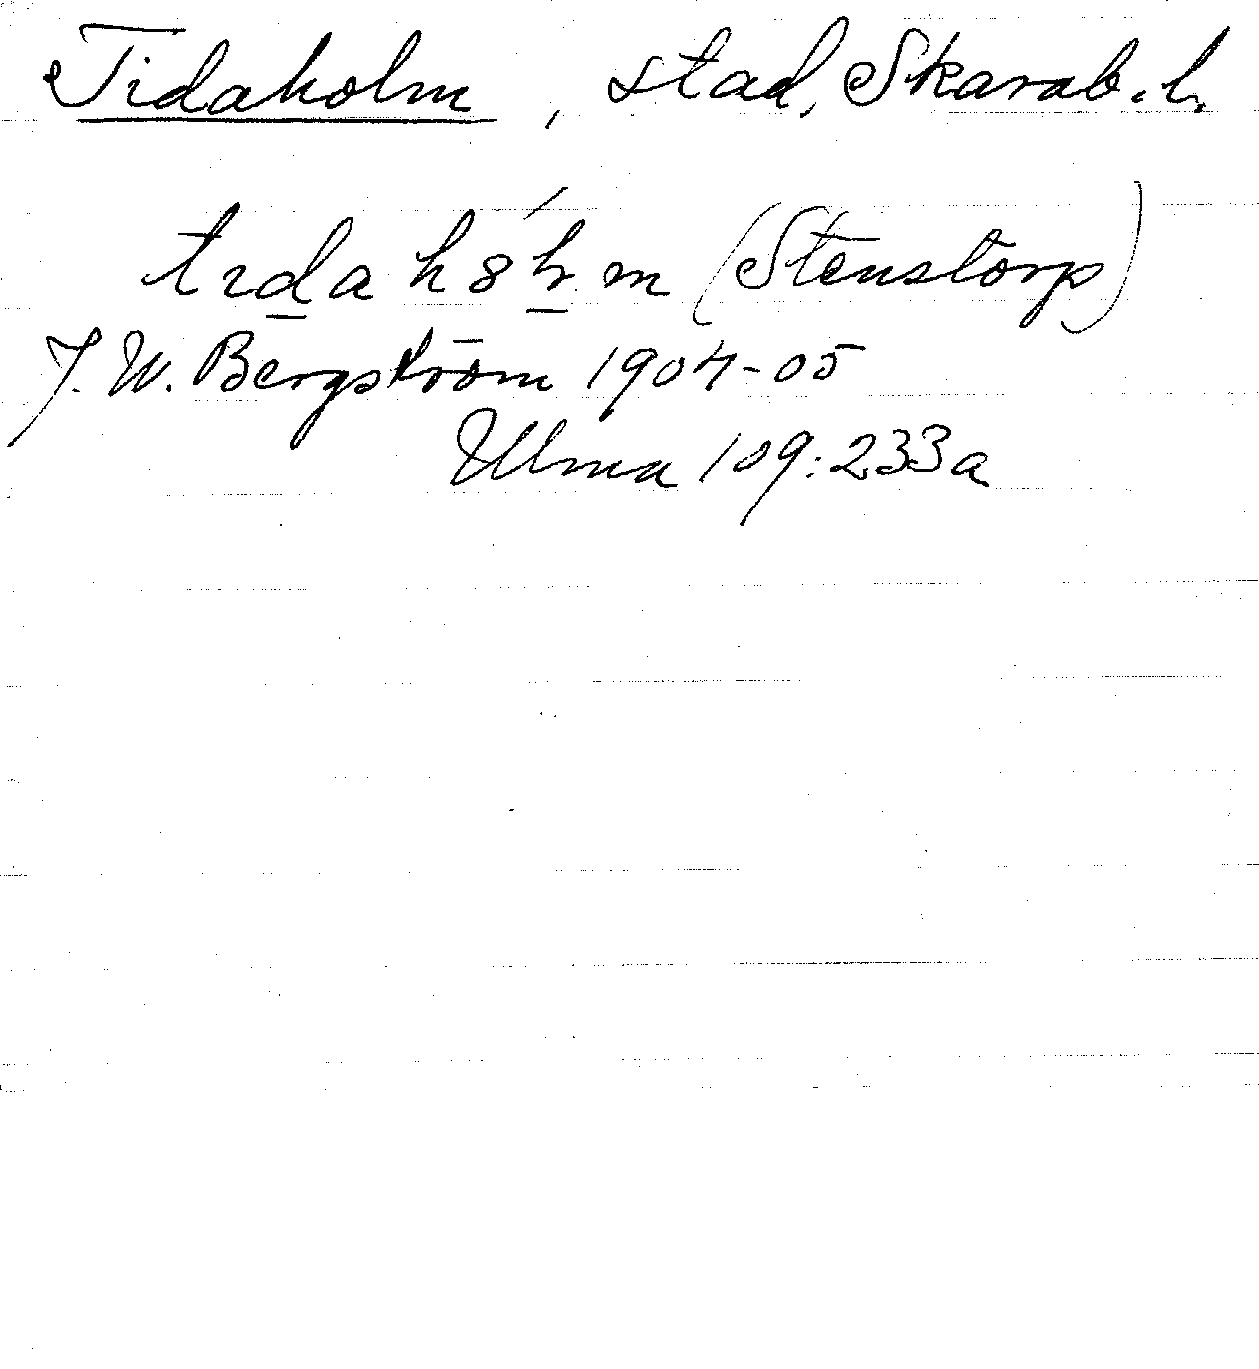 Tidaholm, stad, Skarab. l.
tɪdahȣ́ɫm (Stenstorp)
J. W. Bergström 1904-05
Ulma 109:233a